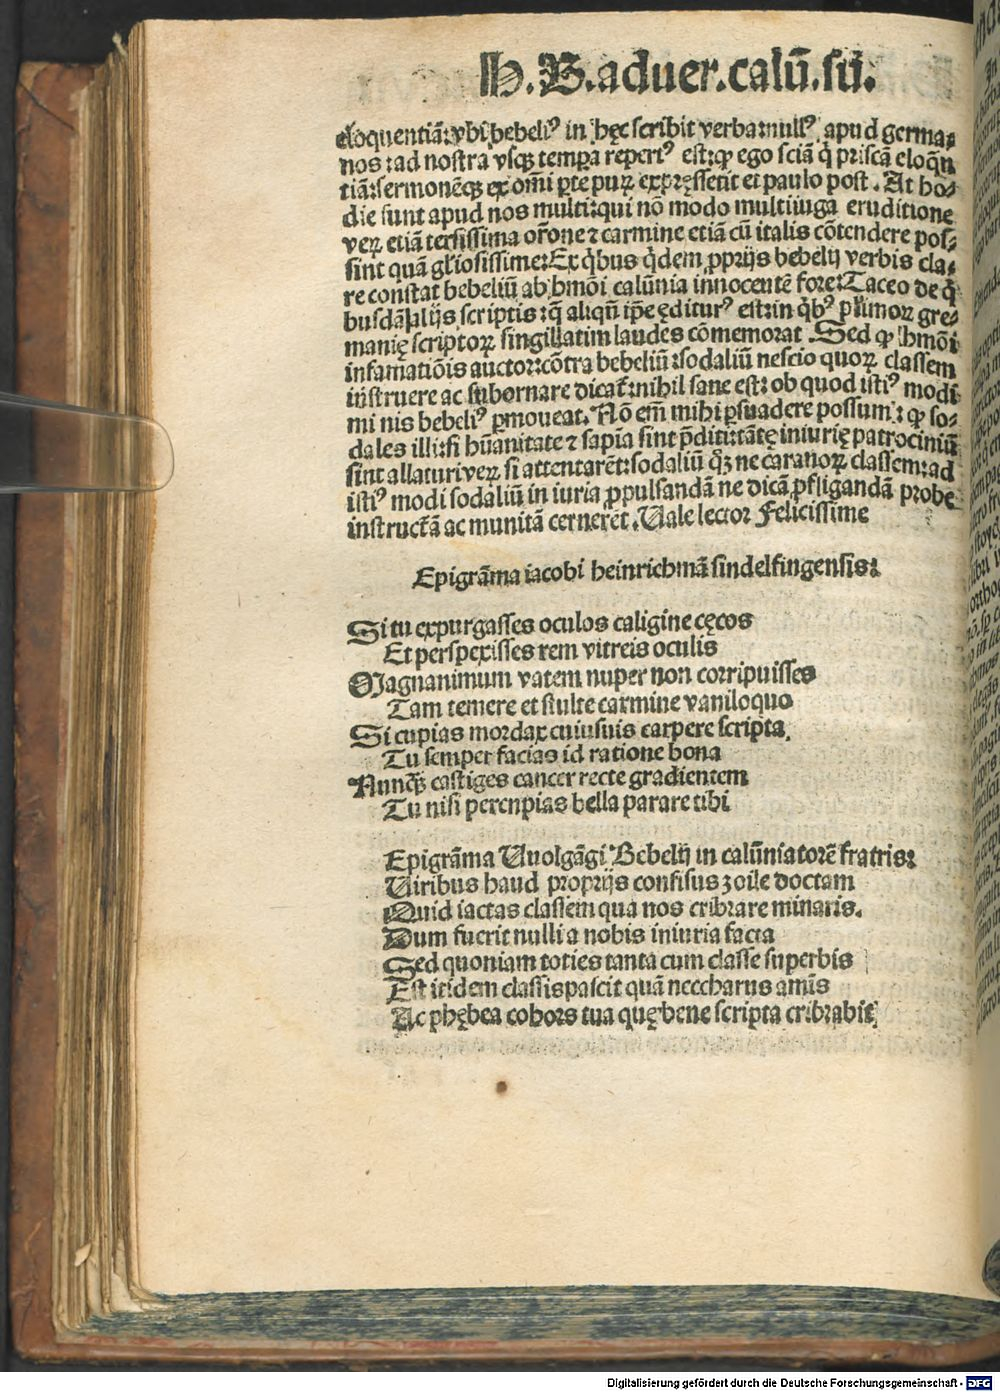 H. B. aduer. calū. su.
eloquentiā: vbi bebeliꝰ in hęc scribit verba: nullꝰ apud germa⸗
nos: ad nostra vsqꝫ tempa repertꝰ est: qꝙ ego sciā q̇ priscā eloq̄n
tiā: sermonēqꝫ ex omi pte puꝝ expręsserit et paulo post. At ho⸗
die sunt apud nos multi: qui nō modo multiiuga eruditione
veꝝ etiā tersissima or̄one ⁊ carmine etiā cū italis cōtendere pos⸗
sint quā gl̄iosissime: Ex q̇bus q̇dem ꝓprijs bebelij verbis cla⸗
re constat bebeliū ab hmōi calūnia innocentē fore: Taceo de q̇
busdā alijs scriptis: q̄ aliqn̄ ip̄e ędituꝝꝰ est: in q̇bꝰ plimoꝝ ger⸗
manię scriptoꝝ singillatim laudes cōmemorat. Sed ꝙ hmōi
infamatiōis auctor: cōtra bebeliū: sodaliū nescio quoꝝ classem
instruere ac subornare dicat̄: nihil sane est: ob quod istiꝰ modi
mi nis bebeliꝰ ꝑmoueat. Nō em̄ mihi ꝑsuadere possum: ꝙ so⸗
dales illi: si hūanitate ⁊ sapīa sint p̄diti: tātę iniurię patrociniū
sint allaturi veꝝ si attentarēt: sodaliū qꝫ ne caranoꝝ classem: ad
istiꝰ modi sodaliū in iuria ꝓpulsandā ne dicā ꝓfligandā probe
instructā ac munitā cernerēt. Uale lector Felicissime
Epigrāma iacobi heinrichmā sindelfingensis:
Si tu expurgasses oculos caligine cęcos
Et perspexisses rem vitreis oculis
Magnanimum vatem nuper non corripuisses
Tam temere et stulte carmine vaniloquo
Si cupias mordax cuiusuis carpere scripta
Tu semper facias id ratione bona
Nunqꝫ castiges cancer recte gradientem
Tu nisi percupias bella parare tibi
Epigrāma Uuolgāgi Bebelij in calūniatorē fratris:
Uiribus haud proprijs confisus zoile doctam
Quid iactas classem qua nos cribrare minaris.
Dum fuerit nulli a nobis iniuria facta
Sed quoniam toties tanta cum classe superbis
Est itidem classis pascit quā neccharus amīs
Ac phębea cohors tua quę bene scripta cribrabit
Digitalisierung gefördert durch die Deutsche Forschungsgemeinschaft - DFG